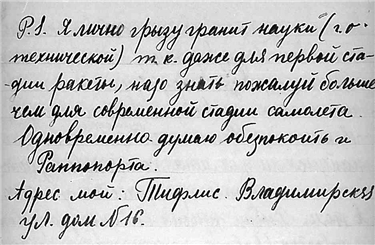 P.S. Я лично грызу гранит науки (г.о.
технической) т.к. даже для первой ста-
дии ракеты, надо знать пожалуй больше
чем для современной стадии самолета.
Одновременно думаю обезпокоить и
Раппопорта.
Адрес мой: Тифлис. Владимирская
ул. дом N 16.